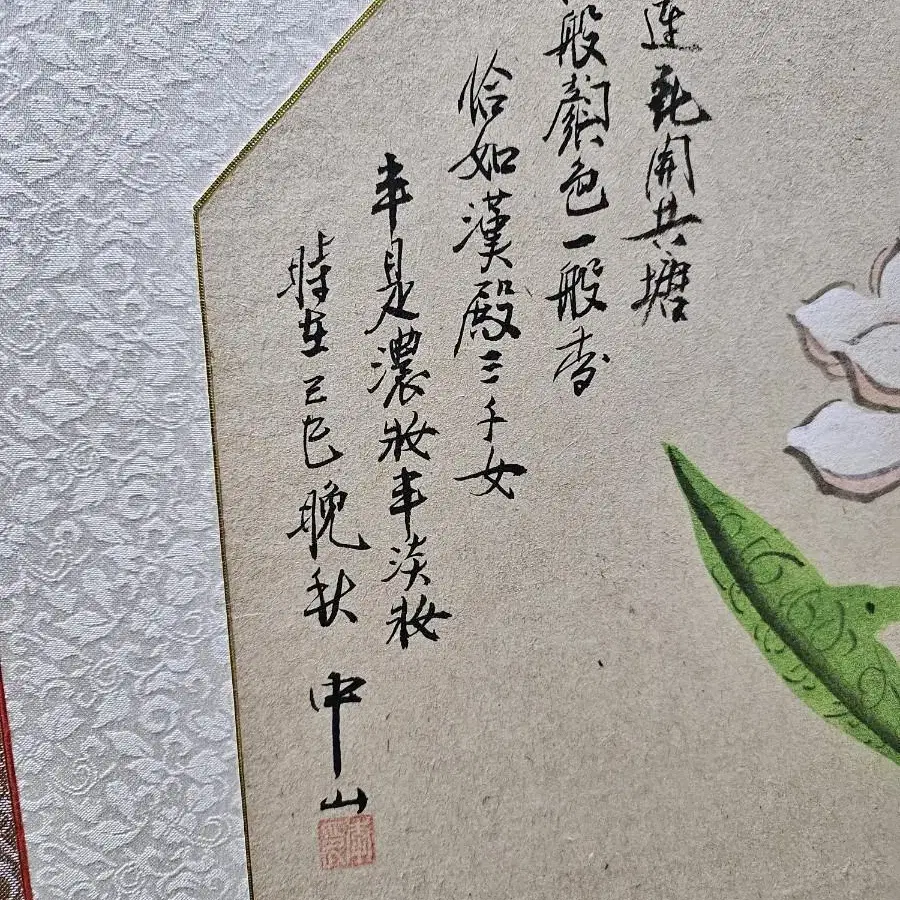 蓮花開共塘
般顔色一般香
恰如漢殿三千女
半是濃妝半淡妝
時在己巳晚秋 中山